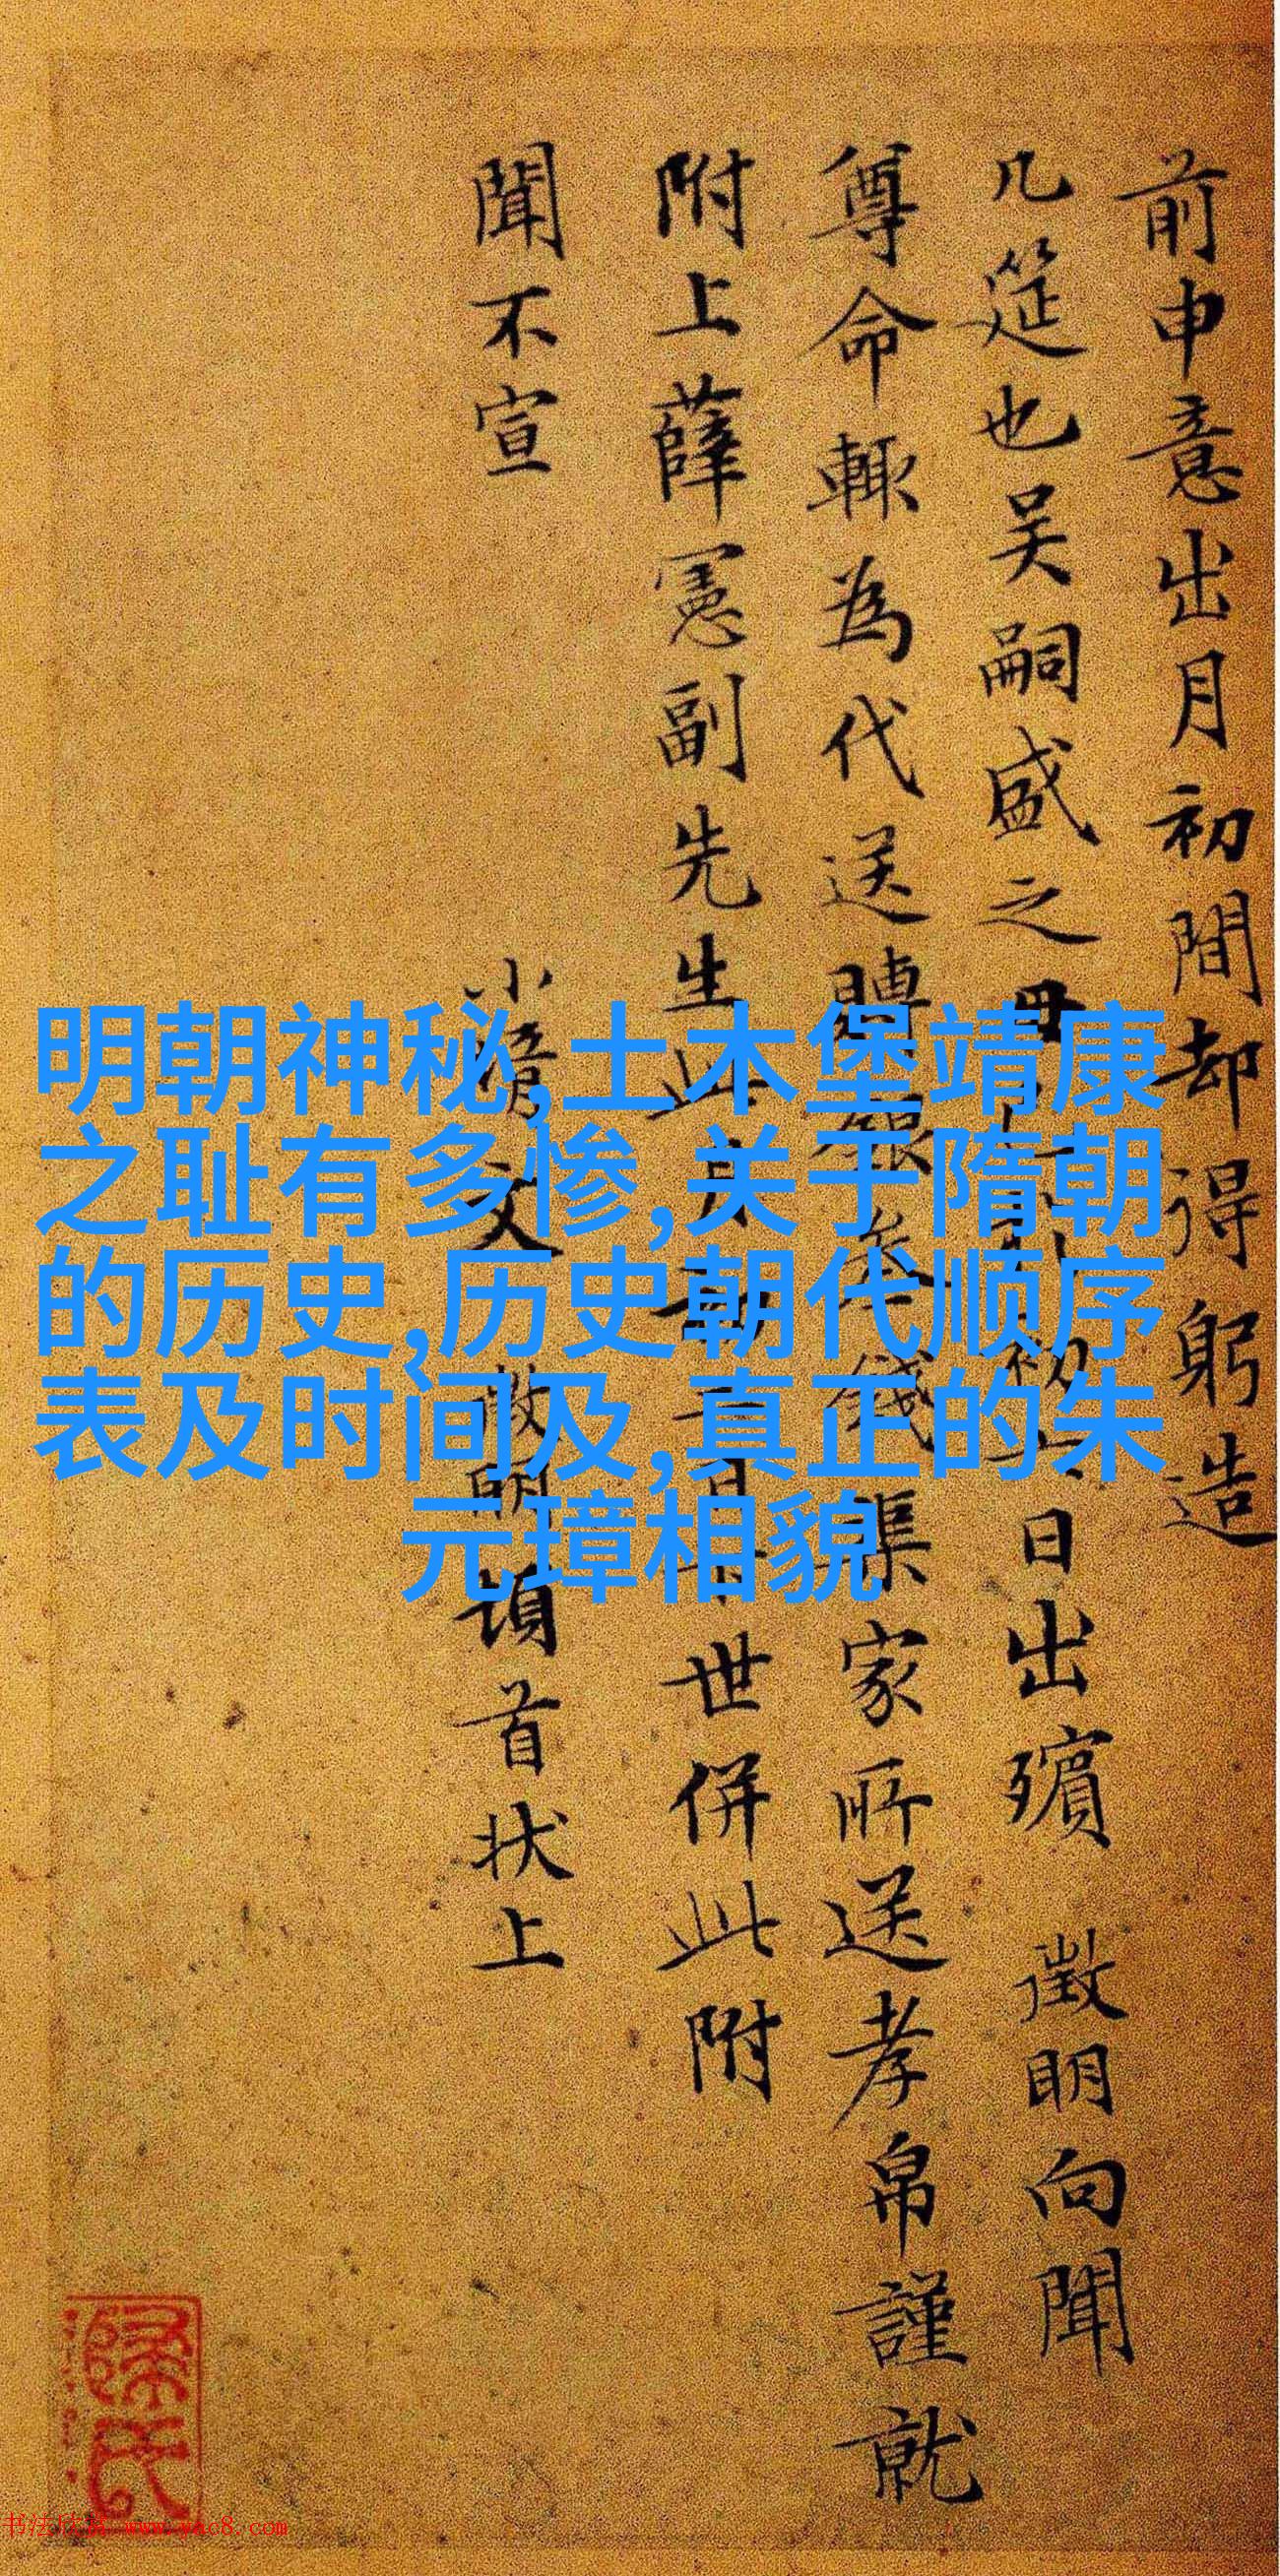 前申意出月初間却得躬造
几筵也吴嗣盛之母
日出殯 徵明向聞
尊命輙為代送賻銀
錢
家所送孝帛謹就
附上薛憲副先生此
世併此附
聞不宣
文
頓首状上
明朝神秘,土木堡靖康
之耻有多惨,关于隋朝
的历史,历史朝代顺序
表及时间及,真正的朱
元璋相貌
书法欣赏 www.yac8.com